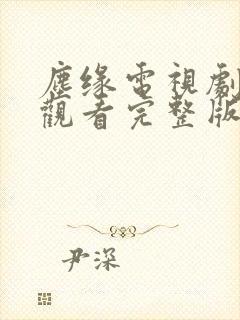 塵缘電視劇
觀看完整版
尹深